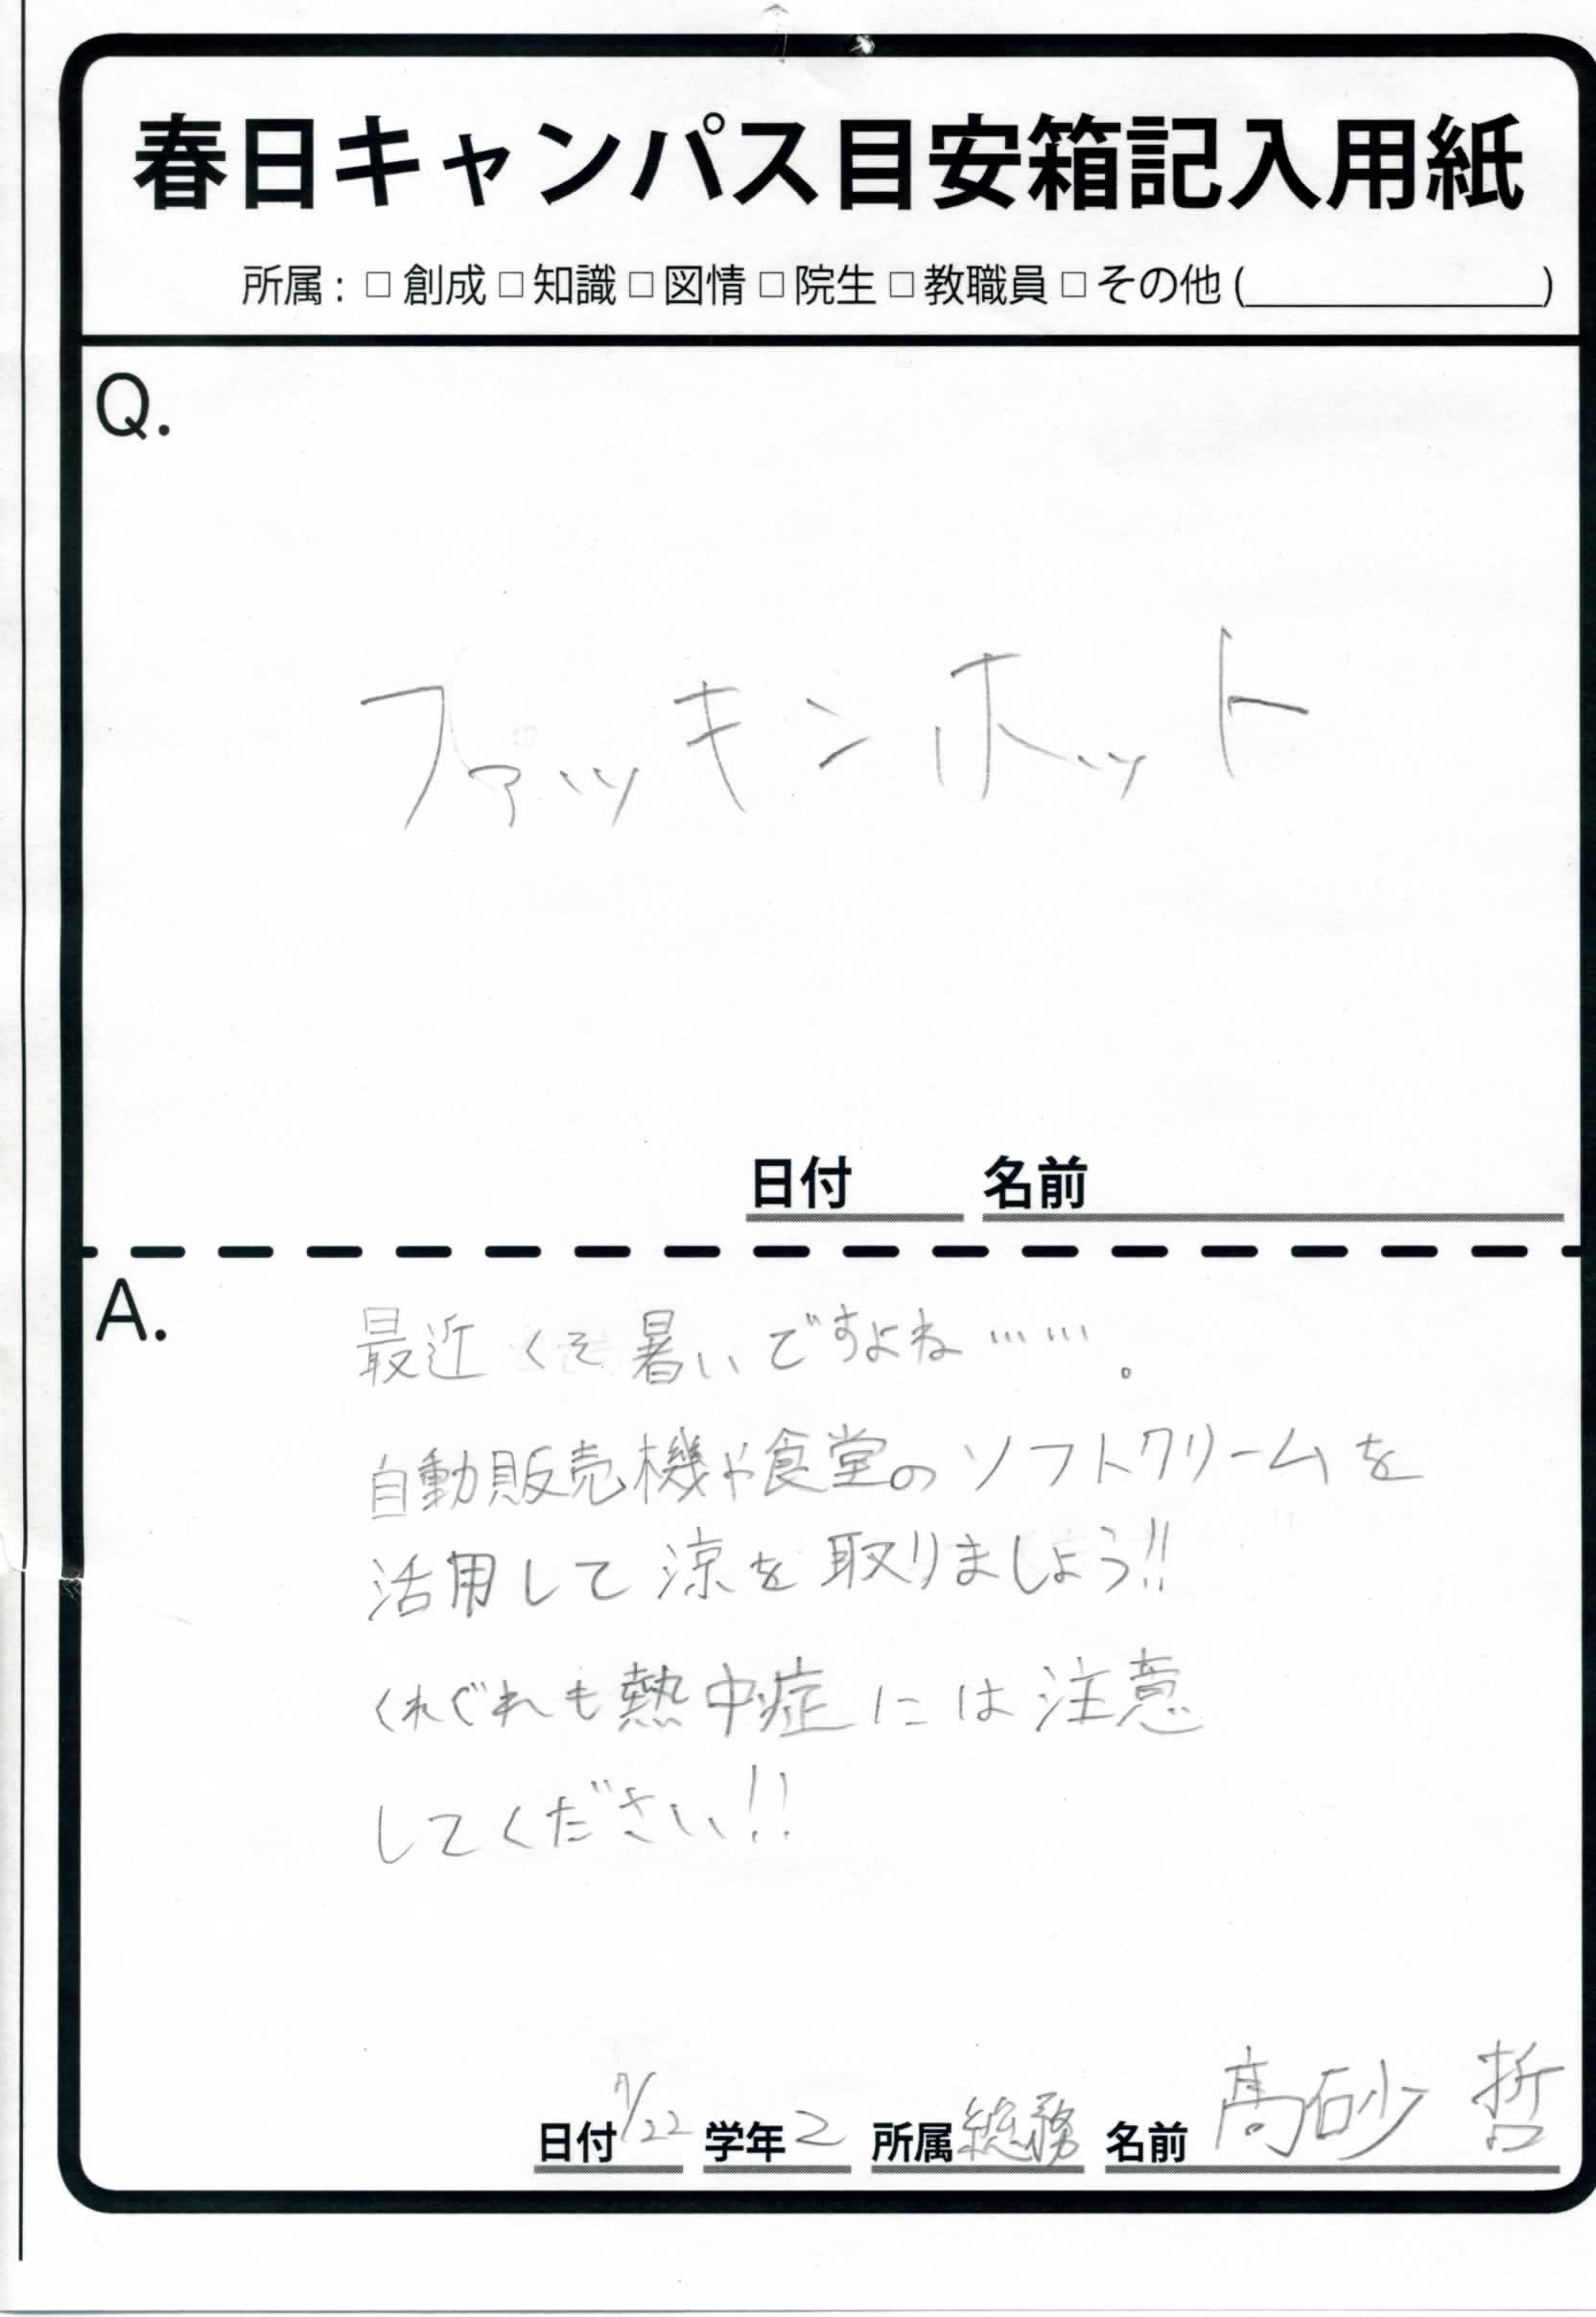 春日キャンパス目安箱記入用紙
所属 : □ 創成 □ 知識 □ 図情 □ 院生 □ 教職員 □ その他 (＿＿＿＿＿＿)
Q.
ファッキンホット
日付 名前
A.
最近くそ暑いですよね……。
自動販売機や食堂のソフトクリームを
活用して涼を取りましょう!!
くれぐれも熱中症には注意
してください!!
日付 7/22 学年 2 所属 総務 名前 髙砂 哲